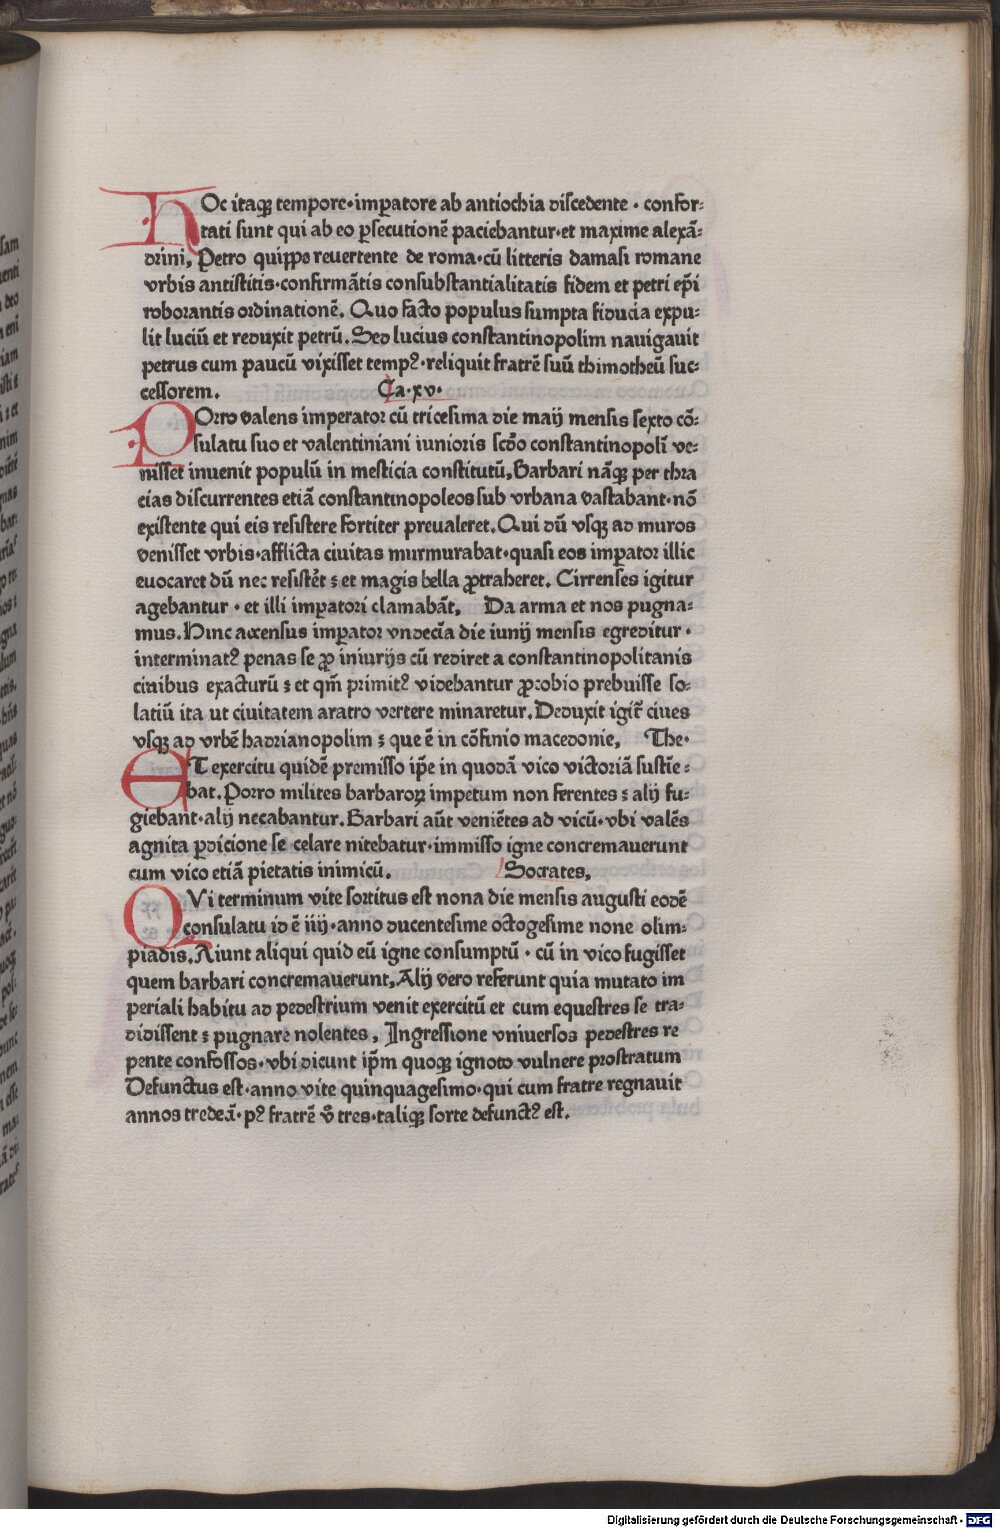 HOc itaqꝫ tempore·imꝑatore ab antiochia discedente · confor⸗
tati sunt qui ab eo ꝑsecutionē paciebantur·et maxime alexā⸗
drini, Petro quippe reuertente de roma·cū litteris damasi romane
vrbis antistitis·confirmātis consubstantialitatis fidem et petri ep̄i
roborantis ordinationē. Quo facto populus sumpta fiducia expu⸗
lit luciū et reduxit petrū. Sed lucius constantinopolim nauigauit
petrus cum paucū vixisset tempꝰ·reliquit fratrē suū thimotheū suc⸗
cessorem. Ca·xv·
POrro valens imperator cū tricesima die maij mensis sexto cō⸗
sulatu suo et valentiniani iunioris scd̄o constantinopolī ve⸗
nisset inuenit populū in mesticia constitutū, Barbari nāqꝫ per thra
cias discurrentes etiā constantinopoleos sub vrbana vastabant·nō
existente qui eis resistere fortiter preualeret. Qui dū vsqꝫ ad muros
venisset vrbis·afflicta ciuitas murmurabat·quasi eos imꝑator illic
euocaret dū nec resistēt ꝫ et magis bella ꝓtraheret. Cirrenses igitur
agebantur · et illi imꝑatori clamabāt. Da arma et nos pugna⸗
mus. Hinc accensus imꝑator vndecīa die iunij mensis egreditur ·
interminatꝰ penas se ꝓ iniurijs cū rediret a constantinopolitanis
ciuibus exacturū ꝫ et qm̄ primitꝰ videbantur ꝓcobio prebuisse so⸗
latiū ita ut ciuitatem aratro vertere minaretur. Deduxit igit̄ ciues
vsqꝫ ad vrbē hadrianopolim ꝫ que ē in cōfinio macedonie, The·
ET exercitu quidē premisso ip̄e in quodā vico victoriā sustīe⸗
bat. Porro milites barbaroꝝ impetum non ferentes ꝫ alij fu⸗
giebant·alij necabantur. Barbari aūt veniētes ad vicū·vbi valēs
agnita ꝑdicione se celare nitebatur·immisso igne concremauerunt
cum vico etiā pietatis inimicū. Socrates,
QVi terminum vite sortitus est nona die mensis augusti eodē
consulatu id ē iiij·anno ducentesime octogesime none olim⸗
piadis. Aiunt aliqui quid eū igne consumptū · cū in vico fugisset
quem barbari concremauerunt, Alij vero referunt quia mutato im
periali habitu ad pedestrium venit exercitū et cum equestres se tra⸗
didissent ꝫ pugnare nolentes, Ingressione vniuersos pedestres re
pente confossos·vbi dicunt ip̄m quoqꝫ ignoto vulnere prostratum
Defunctus est·anno vite quinquagesimo·qui cum fratre regnauit
annos tredecī·pꝰ fratrē v̄o tres·taliqꝫ sorte defunctꝰ est.
Digitalisierung gefördert durch die Deutsche Forschungsgemeinschaft - DFG